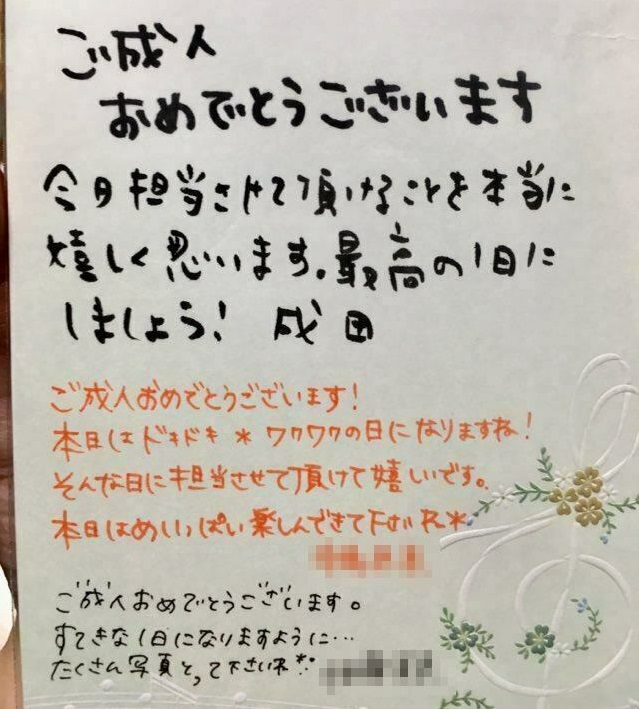 ご成人
おめでとうございます
今日担当させて頂けることを本当に
嬉しく思います。最高の1日に
しましょう! 成田
ご成人おめでとうございます!
本日はドキドキ*ワクワクの日になりますね!
そんな日に担当させて頂けて嬉しいです。
本日はめいっぱい楽しんできて下さいね*
ご成人おめでとうございます。
すてきな1日になりますように…
たくさん写真とって下さいね